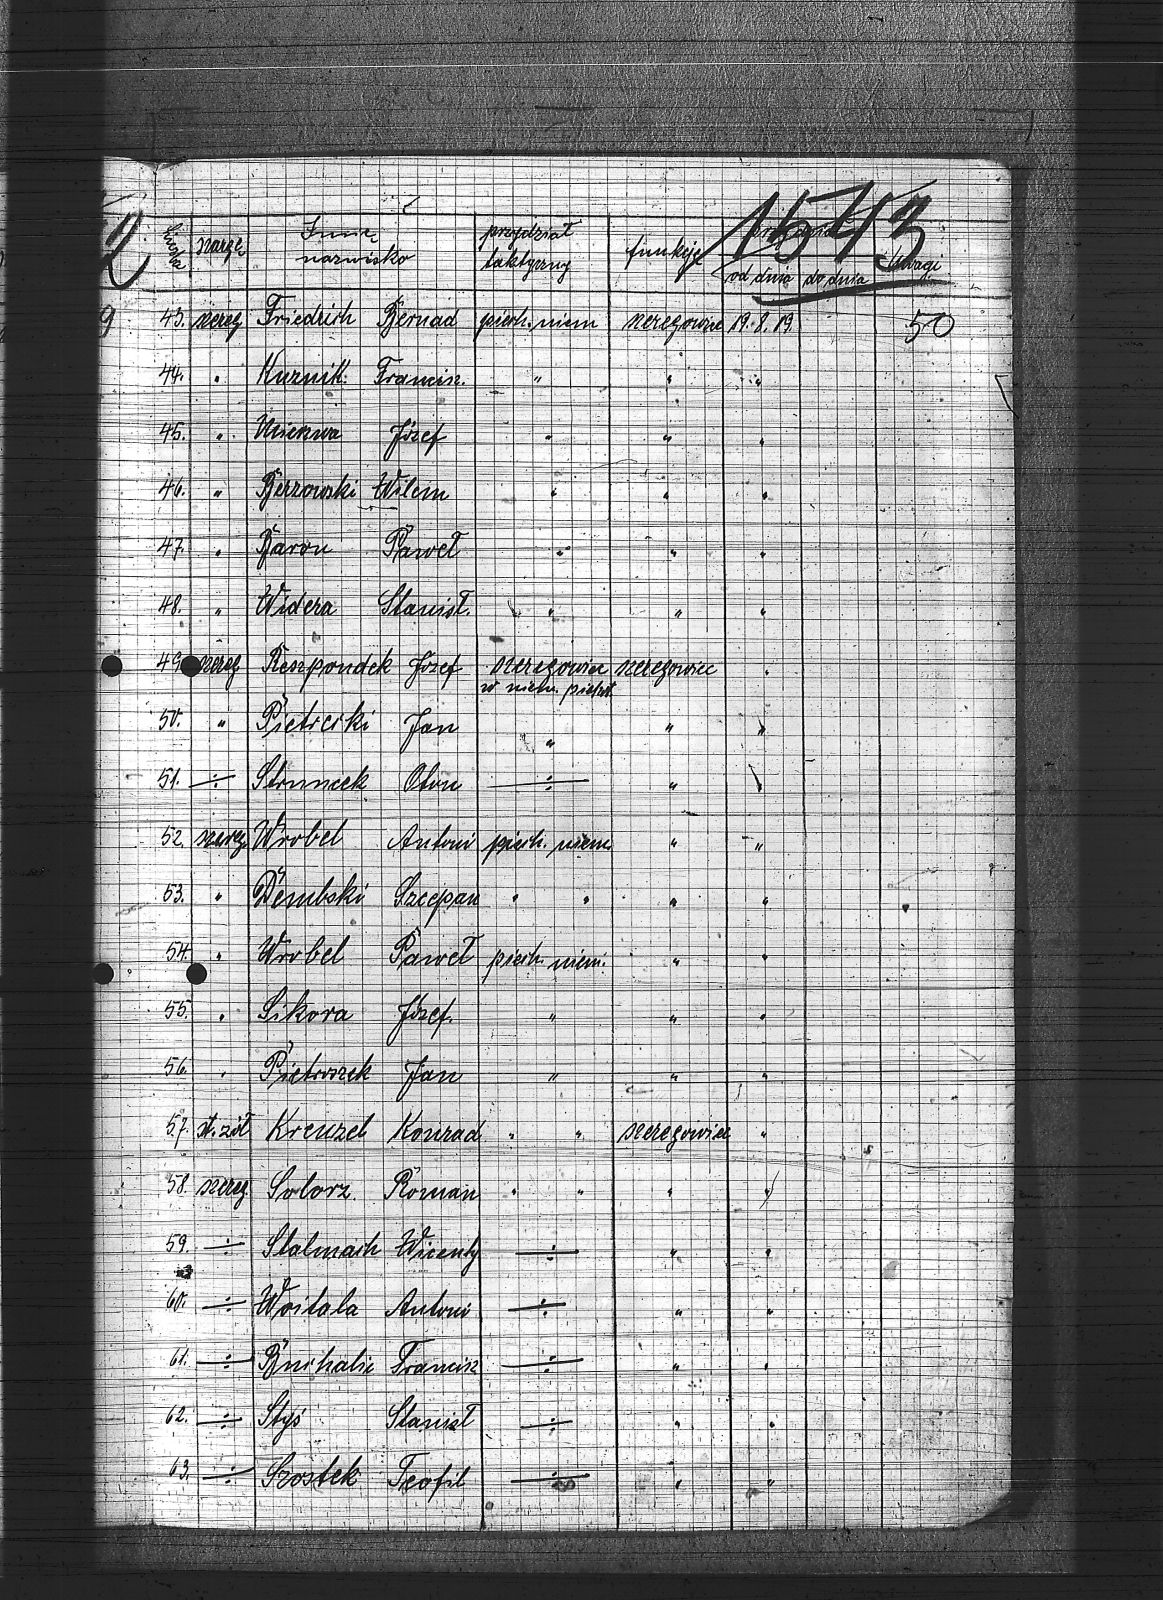 1543
Liczba szarże Imię, nazwisko przydział taktyczny funkcje od dnia do dnia Uwagi
43. szereg Friedrich Bernad piech. niem szeregowiec 19.8.19. 50
44. " Kuznik. Francisz. " " "
45. " Józef " " "
46. " Berzowski Wilem " " "
47. " Baron Paweł " " "
48. " Widera Stanisł. " " "
49. szereg Reszpondek Józef szeregowiec szeregowiec "
w niem. piech.
50. " Jan " " "
51. ÷ Oton ÷ "
52. szereg Wrobel Antoni piech. niem. " "
53. " Dembski Szczepan " " " "
54. " Wrobel Paweł piech. niem. " "
55. " Sikora Józef. " " "
56. " Pietroszek Jan " " "
57. st. żoł Kreuzel Konrad " " szeregowiec "
58. szereg. Solorz. Roman " " " "
59. ÷ Stalmach Wicenty ÷ " "
60. ÷ Woitala Antoni ÷ " "
61. ÷ Buchalic Francisz ÷ " "
62. ÷ Styś Stanisł ÷ " "
63. ÷ Szostek Teofil ÷ " "